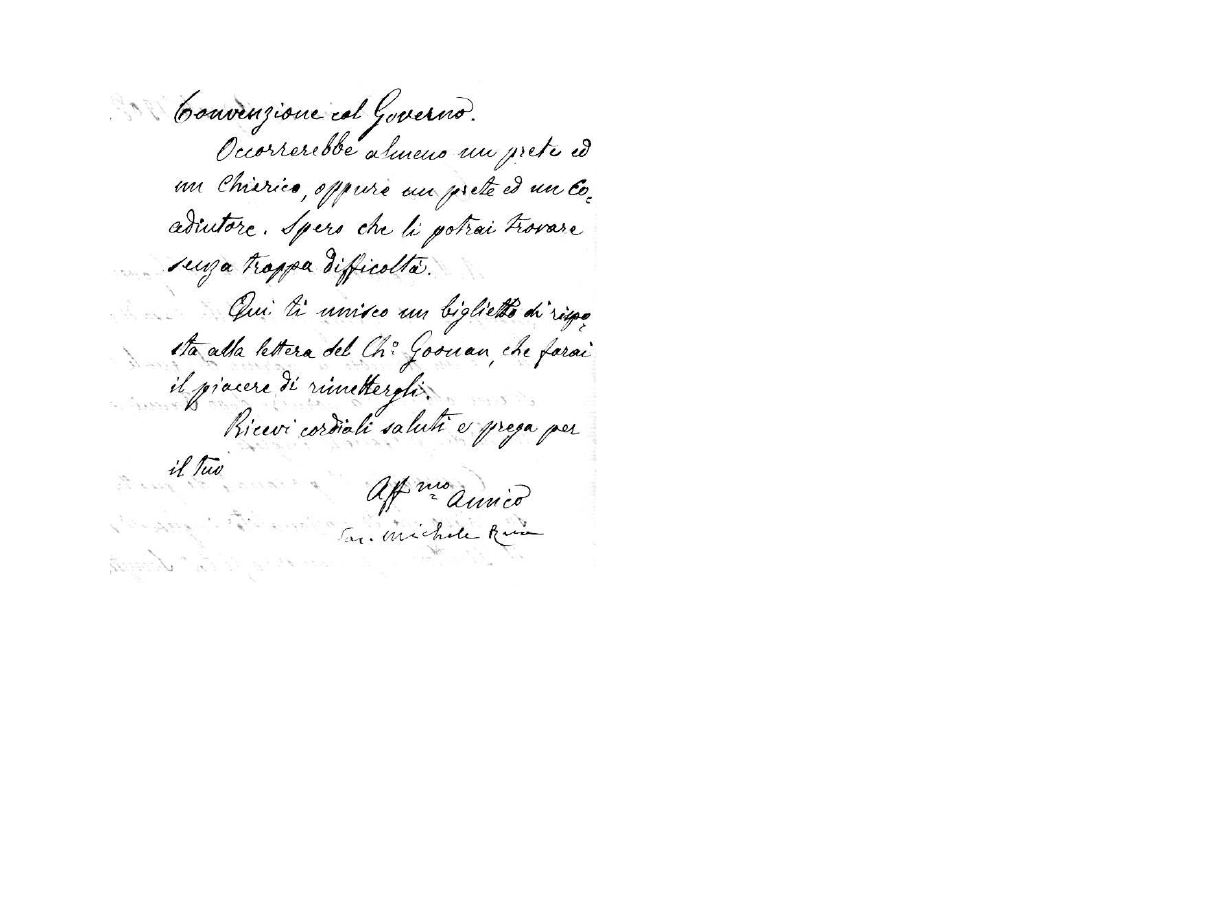 Convenzione col Governo.
Occorrerebbe almeno un prete ed
un Chierico, oppure un prete ed un Co=
adiutore. Spero che li potrai trovare
senza troppa difficoltà.
Qui ti unisco un biglietto di rispo=
sta alla lettera del Ch.º Goonan, che farai
il piacere di rimettergli.
Ricevi cordiali saluti e prega per
il tuo
Aff.mo amico
Sac. Michele Rua